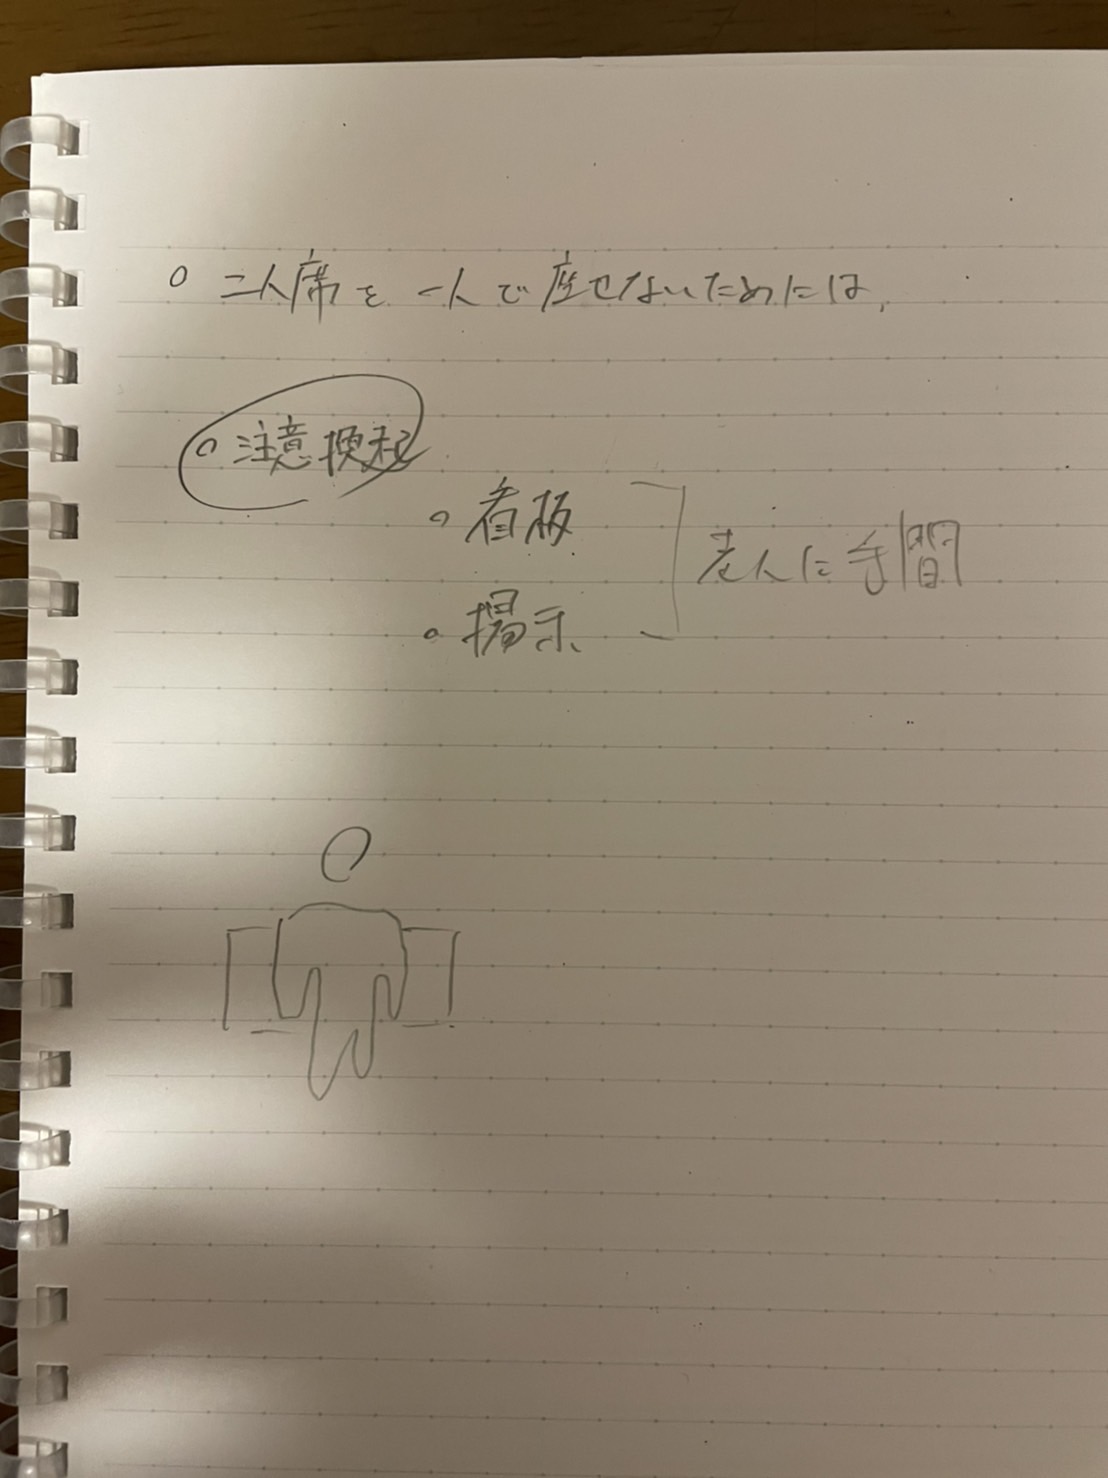 二人席を一人で座せないためには、
注意換起
看板
掲示
老人に手間